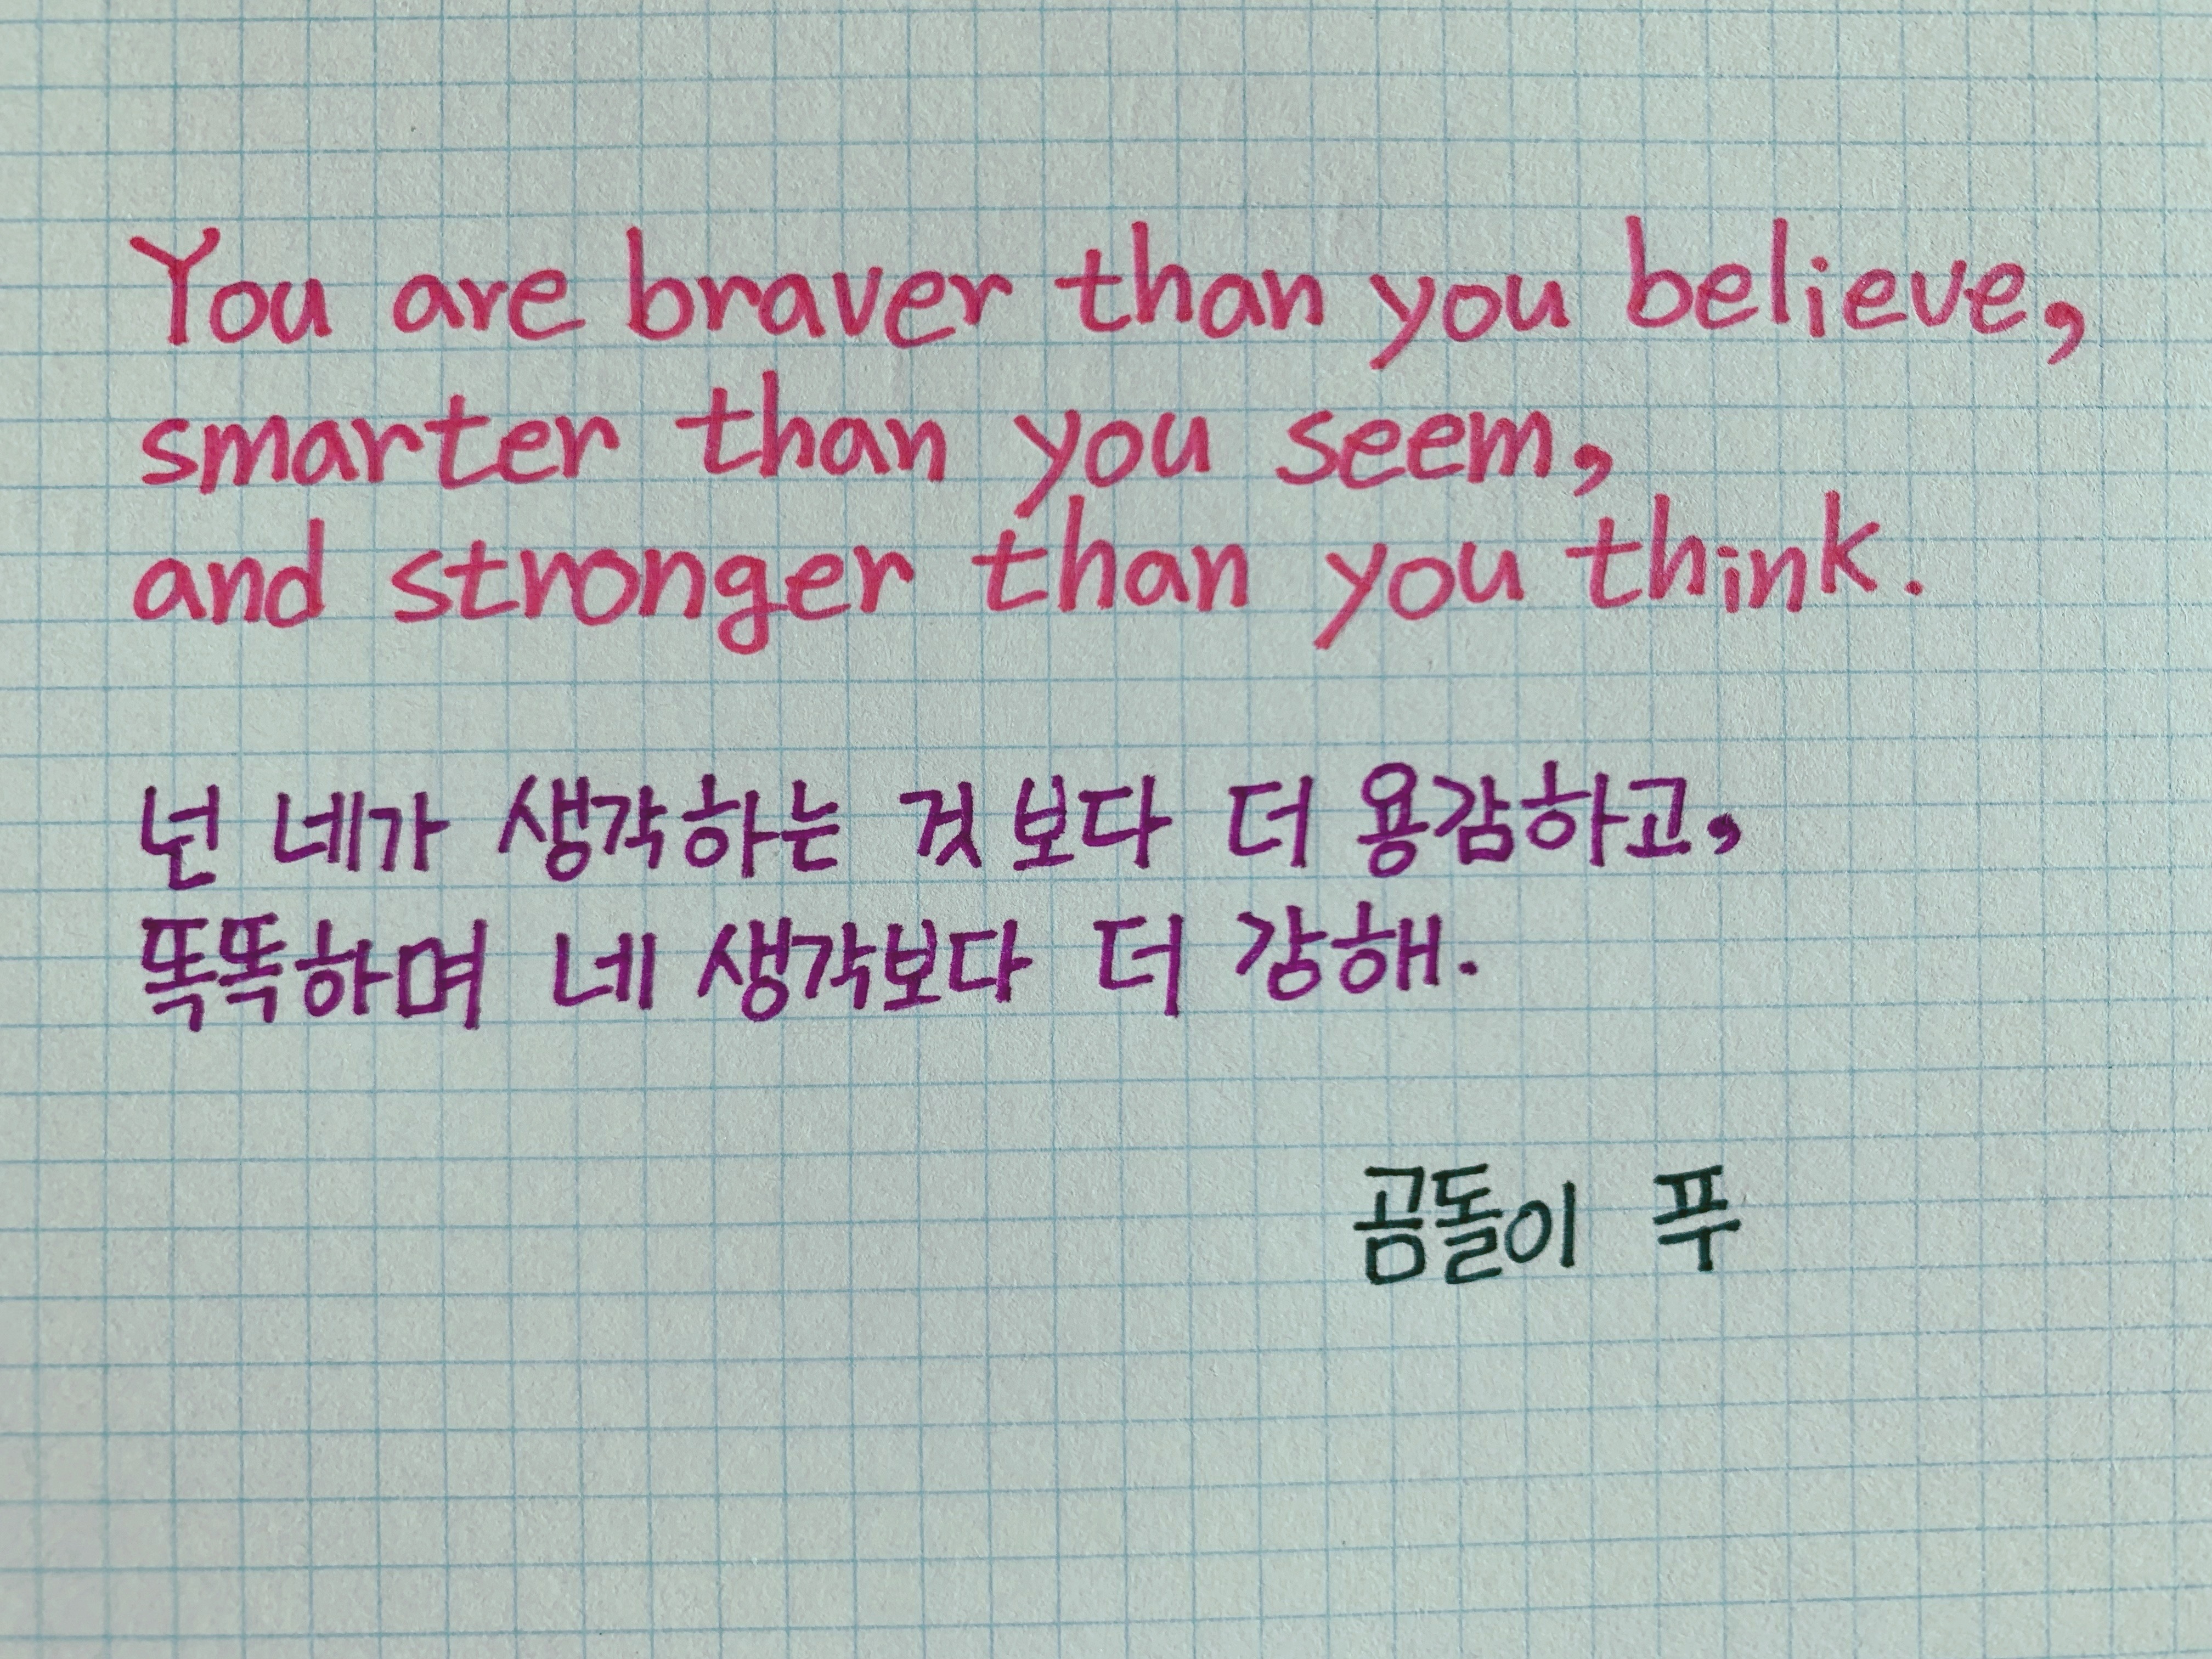 You are braver than you believe,
smarter than you seem,
and stronger than you think.
넌 네가 생각하는 것보다 더 용감하고,
똑똑하며 네 생각보다 더 강해.
곰돌이 푸